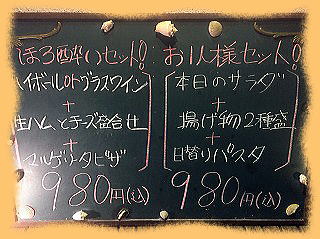 ほろ酔いセット!
ハイボールorグラスワイン
+
生ハムとチーズ盛合せ
+
マルゲリータピザ
980円(込)
お1人様セット!
本日のサラダ
+
揚げ物2種盛
+
日替りパスタ
980円(込)